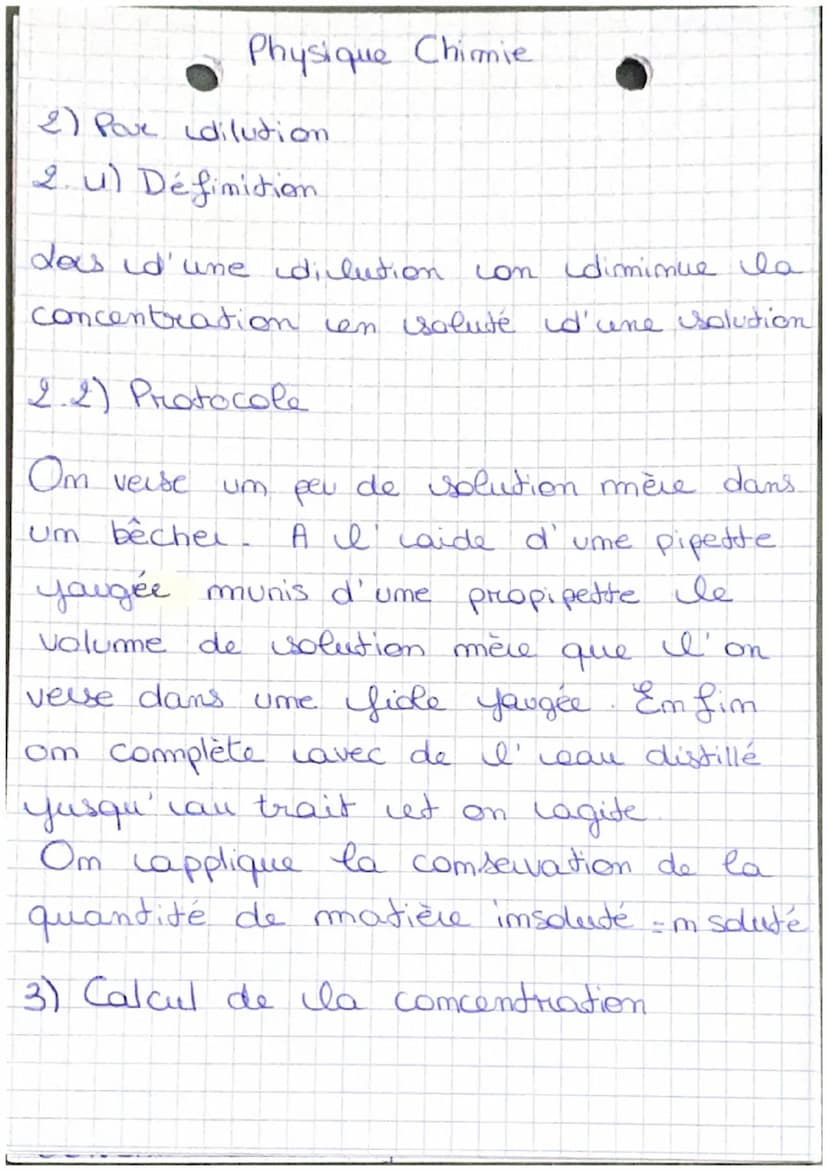 Physique Chimie
2) Par dilution
2.1) Définition
lors d'une dilution on diminue la
concentration en soluté d'une solution
2.2) Protocole
On verse un peu de solution mère dans
un bêcher. A l'aide d'une pipette
jaugée munis d'une propipette le
volume de solution mère que l'on
verse dans une fiole jaugée. Enfin
on complète avec de l'eau distillé
jusqu'au trait et on agite.
On applique la conservation de la
quantité de matière insoluté = m soluté
3) Calcul de la concentration